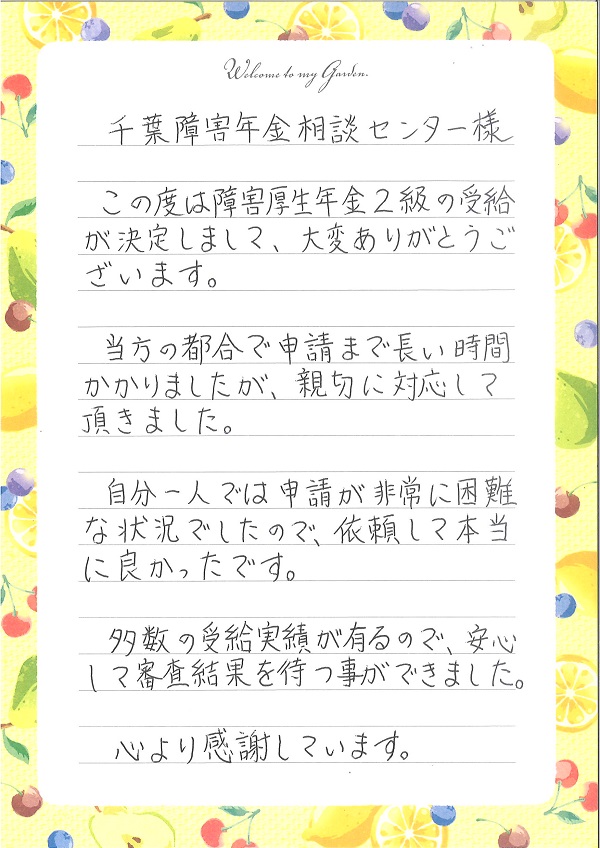 Welcome to my Garden.
千葉障害年金相談センター様
この度は障害厚生年金2級の受給
が決定しまして、大変ありがとうご
ざいます。
当方の都合で申請まで長い時間
かかりましたが、親切に対応して
頂きました。
自分一人では申請が非常に困難
な状況でしたので、依頼して本当
に良かったです。
多数の受給実績が有るので、安心
して審査結果を待つ事ができました。
心より感謝しています。